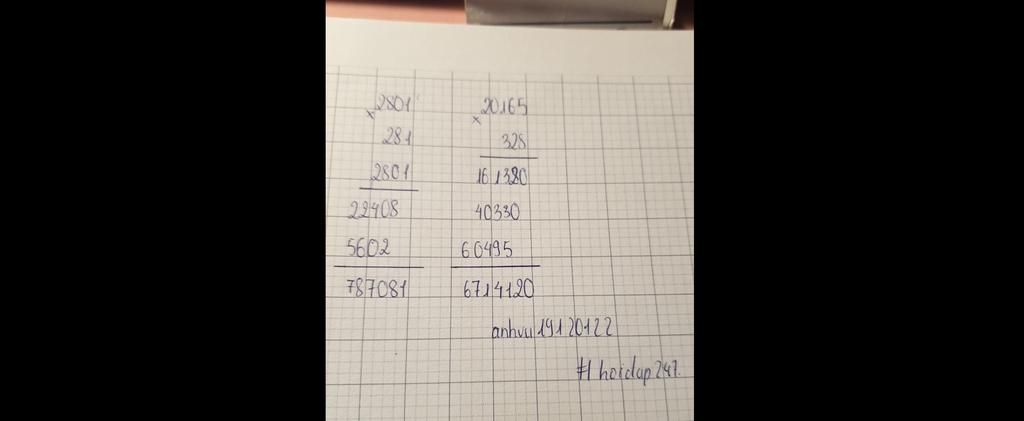 2801
× 281
2801
22408
5602
787081
20165
× 328
161320
40330
60495
6714120
anhvu19120122
#hoidap247.